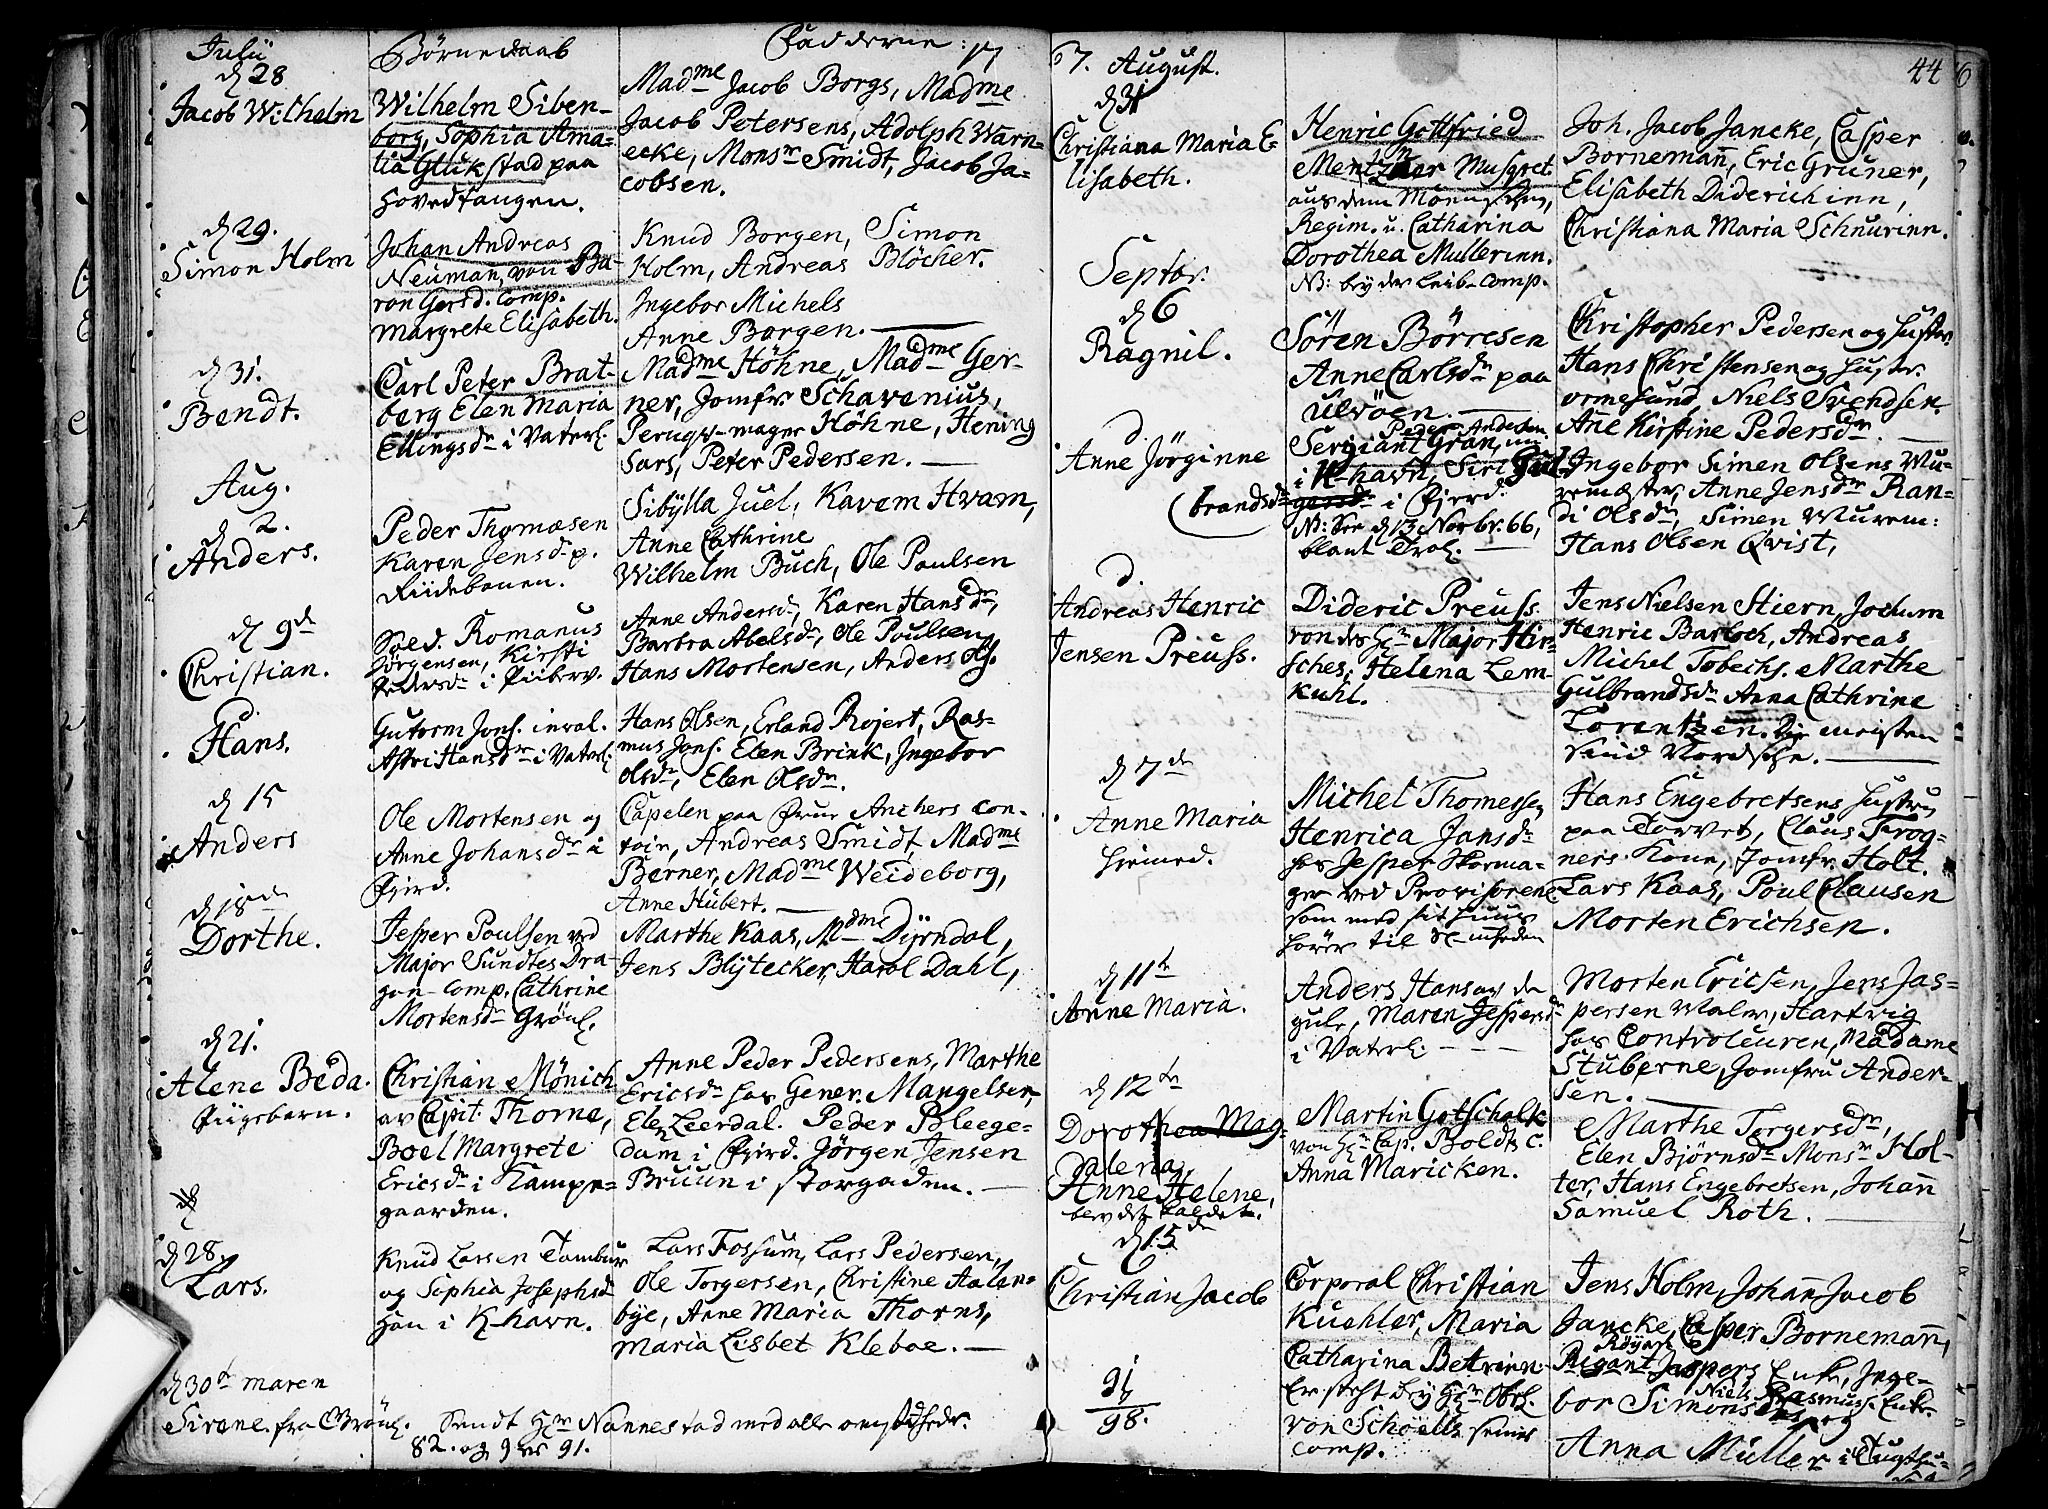 Julii
d 28
Jacob Wilhelm
Börnedaab
Wilhelm Siben-
borg, Sophia Ama-
lia Glükstad paa
Hovedtangen.
Fadderne: 17
Madme Jacob Borgs, Madme
Jacob Petersens, Adolph Warn-
ecke, Monsr Smidt, Jacob Ja-
cobsen.
d 29.
Simon Holm
Johan Andreas
Neuman, von Ba-
ron Gersd. Comp.
Margrete Elisabeth.
Knud Borgen, Simon
Holm, Andreas Blöcher.
Ingebor Michels
Anne Borgen.
d 31.
Bendt.
Carl Peter Brat-
berg Elen Maria
Ellingsdr i Vaterl.
Madme Höhne, Madme Ger-
ner, Jomfr. Schavenius,
Peruqv-mager Höhne, Hening
Sars, Peter Pedersen.
Aug.
d 2.
Anders.
Peder Thomæsen
Karen Jensd. p.
Riidebanen.
Sibylla Juel, Karem Hvam,
Anne Cathrine
Wilhelm Buch, Ole Paulsen
d 9de
Christian.
Romanus
Jörgensen, Kirsti
Pedersdr i Piiberv.
Anne Andersdr, Karen Hansdr,
Barbra Abelsdr, Ole Poulsen,
Hans Mortensen, Anders Ols.
Hans.
Gutorm Jons. inval.
Astri Hansdr i Vaterl.
Hans Olsen, Erland Rojert, Ras-
mus Jons. Elen Brink, Ingebor
Olsdr, Elen Olsdr.
d 15
Anders
Ole Mortensen og
Anne Johansdr i
Fjerd.
Capelen paa Frue Anchers Con-
toir, Andreas Smidt, Madme
Berner, Madme Weideborg,
Anne Hübert.
d 18de
Dorthe.
Jesper Poulsen ved
Major Sundtes Dra-
gon-Comp. Cathrine
Mortensdr Grönl.
Marthe Kaas, Mdme Dyrndal,
Jens Blytecker, Harol Dahl,
d 21.
Alene Beda.
Piigebarn.
Christian Mönich
av Capit. Thorne,
Boel Margrete
Ericsdr i Kampe-
gaarden.
Anne Peder Pedersens, Marthe
Ericsdr hos Gener. Mangelsen,
Elen Leerdal. Peder Bleege-
dam i Fjerd. Jörgen Jensen
Bruun i Storgaden.
d 28.
Lars.
Knud Larsen Tambur
og Sophia Josephsd
han i K-havn.
Lars Fossum, Lars Pedersen,
Ole Torgersen, Christine Aalen-
bye, Anne Maria Thorns,
Maria Lisbet Kleboe.
d 30te Maren
Sirene fra Grönl. Sendt Hr Nannestad med alle omstdheder.
82. og 9 er 91.
67. August.
44
d 31
Christiana Maria E-
lisabeth.
Henric Gottfried
Mentzner Musqvet.
aus dem
Regim. u. Catharina
Dorothea Mullerinn.
NB: bey der Leib-Comp.
Joh. Jacob Jancke, Casper
Bornemañ, Eric Gruner,
Elisabeth Diderichinn,
Christiana Maria Schnurinn.
Septbr.
d 6
Ragnil.
Sören Börresen
Anne Carlsdr paa
Ulvöen.
Christopher Pedersen og Hustr.
Hans Christensen og Hustr.
Ormesund, Niels Svendsen.
Ane Kirstine Pedersdr.
d.
Anne Jörginne
Peder Andersen
Sergiant Gran, nu
i K-havn, Siri Gul-
brandsdr i Fjerd.
NB: See d 13 Novbr. 66,
blant Trol.
Ingebor Simen Olsens Mu-
remæster, Anne Jensdr Ran-
di Olsdr, Simen Murem:
Hans Olsen Qvist,
d.
Andreas Henric
Jensen Preuss.
Dideric Preuss.
von der Hr Major Hir-
sches, Helena Lem-
kuhl.
Jens Nielsen Stiern, Jochum
Henric Bartoch, Andreas
Michel Tobechs. Marthe
Gulbrandsdr Anna Cathrine
Lorentzen. Die meisten
sind Nordsche.
d 7de
Anne Maria
hiemed.
Michel Thomessen,
Henrica Jansdr
hos Jesper Skorma-
ger ved Provisoren
som med sit Huus
hörer til
Hans Engebretsens Hustru
paa Torvet, Claus Frog-
ners Kone, Jomfr. Holt.
Lars Kaas, Poul Clausen
Morten Erichsen.
d 11te
Anne Maria.
Anders Hans av de
gule, Maren Jespersdr
i Vaterl.
Morten Ericsen, Jens Jas-
persen Maler, Hartvig
hos Controleuren, Madame
Stuberne, Jomfru Ander-
sen.
d 12te
Dorothea Mag-
dalena,
Anne Helene,
blev det kaldet.
Martin Gotschalk
von Hr Cap. Boldts C.
Anna Maricken.
Marthe Torgersdr,
Elen Björnsdr Monsr Hol-
ter, Hans Engebretsen, Johañ
Samuel Roth.
d 15de
Christian Jacob
Corporal Christian
Kuehler, Maria
Catharina Bettrinn.
Er steht bey Hr Obrl.
von Schoells seiner
Comp.
Jens Holm, Johañ Jacob
Jancke, Casper Bornemañ,
Jaspers Enke, Inge-
bor Simons
Niels Rasmuss. Enke.
Anna Müller i Tugthu-
set.
91
7
98.